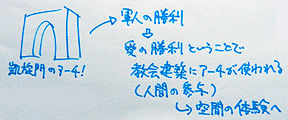 → 軍人の勝利
↓
愛の勝利ということで
教会建築にアーチが使われる
(人間の参与)
↳ 空間の体験へ
凱旋門のアーチ!